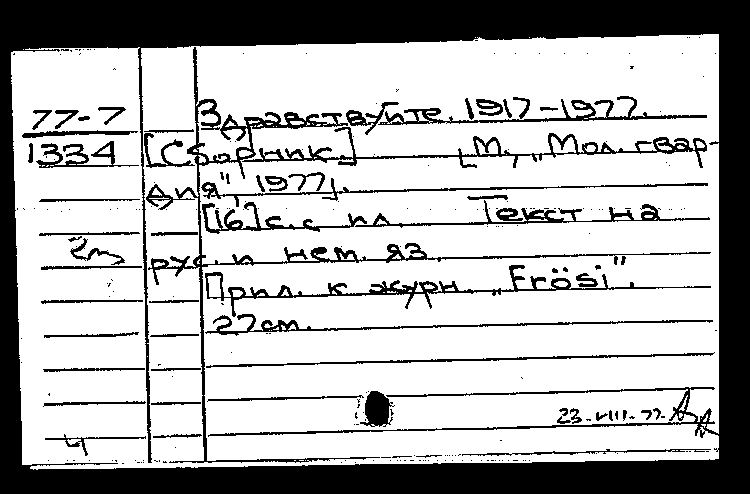 77-7
1334
Здравствуйте. 1917-1977.
[Сборник.] [М., „Мол. гвар-
дия", 1977].
[16]с. с ил. Текст на
рус. и нем. яз.
Прил. к журн. „Frösi".
27см.
23-VIII-77.